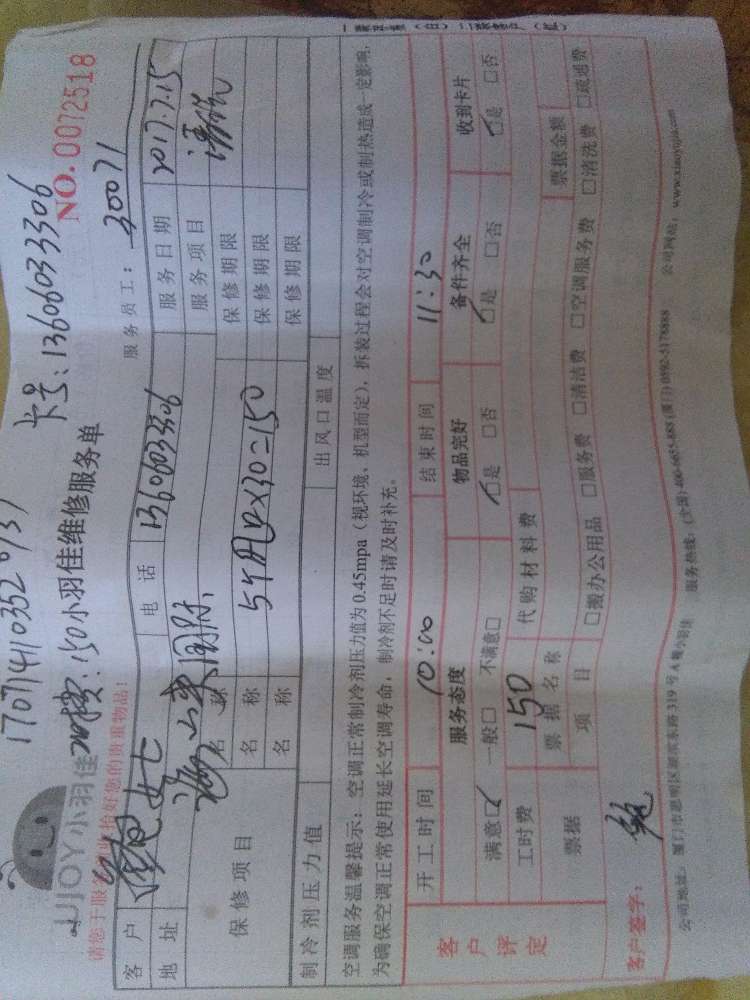 卡号:13606033306
UJOY小羽佳
150小羽佳维修服务单
NO.0072518
请您于服务前收拾好您的贵重物品:
服务员工: 30071
客户 女士 电话 13606033306 服务日期 2017.7.15
地址 服务项目 清洗
保修项目 名称 保修期限
名称 5个机P×30=150 保修期限
名称 保修期限
制冷剂压力值 出风口温度
空调服务温馨提示:空调正常制冷剂压力值为0.45mpa(视环境、机型而定),拆装过程会对空调制冷或制热造成一定影响,
为确保空调正常使用延长空调寿命,制冷剂不足时请及时补充。
客户评定
开工时间 10:00 结束时间 11:30
服务态度 物品完好 备件齐全 收到卡片
满意☑ 一般□ 不满意□ ☑是 □否 ☑是 □否 ☑是 □否
工时费 150 代购材料费
票据 票据名称 票据金额
项目 □搬办公用品 □服务费 □清洁费 □空调服务费 □清洗费 □疏通费
客户签字:
公司地址:厦门市思明区湖滨东路319号A幢小羽佳 服务热线:(全国)400-6655-888 (厦门)0592-5178888 公司网站:www.xiaoyujia.com